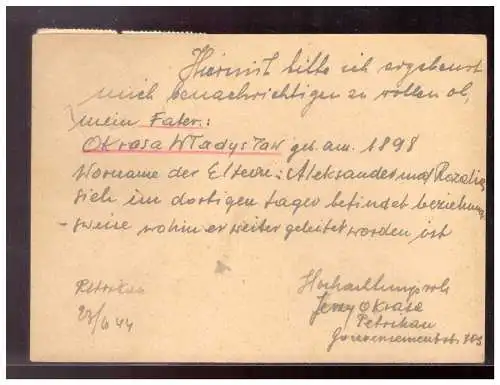 Hiermit bitte ich ergebenst
mich benachrichtigen zu wollen ob,
mein Fater:
Okrasa Władysław geb. am. 1898
Vorname der Eltern: Aleksander und Rozalia
sich im dortigen Lager befindet beziehungs
- weise wohin er weiter geleitet worden ist
Hochachtungsvoll
Petrikau
Jerzy Okrasa
44
Petrikau